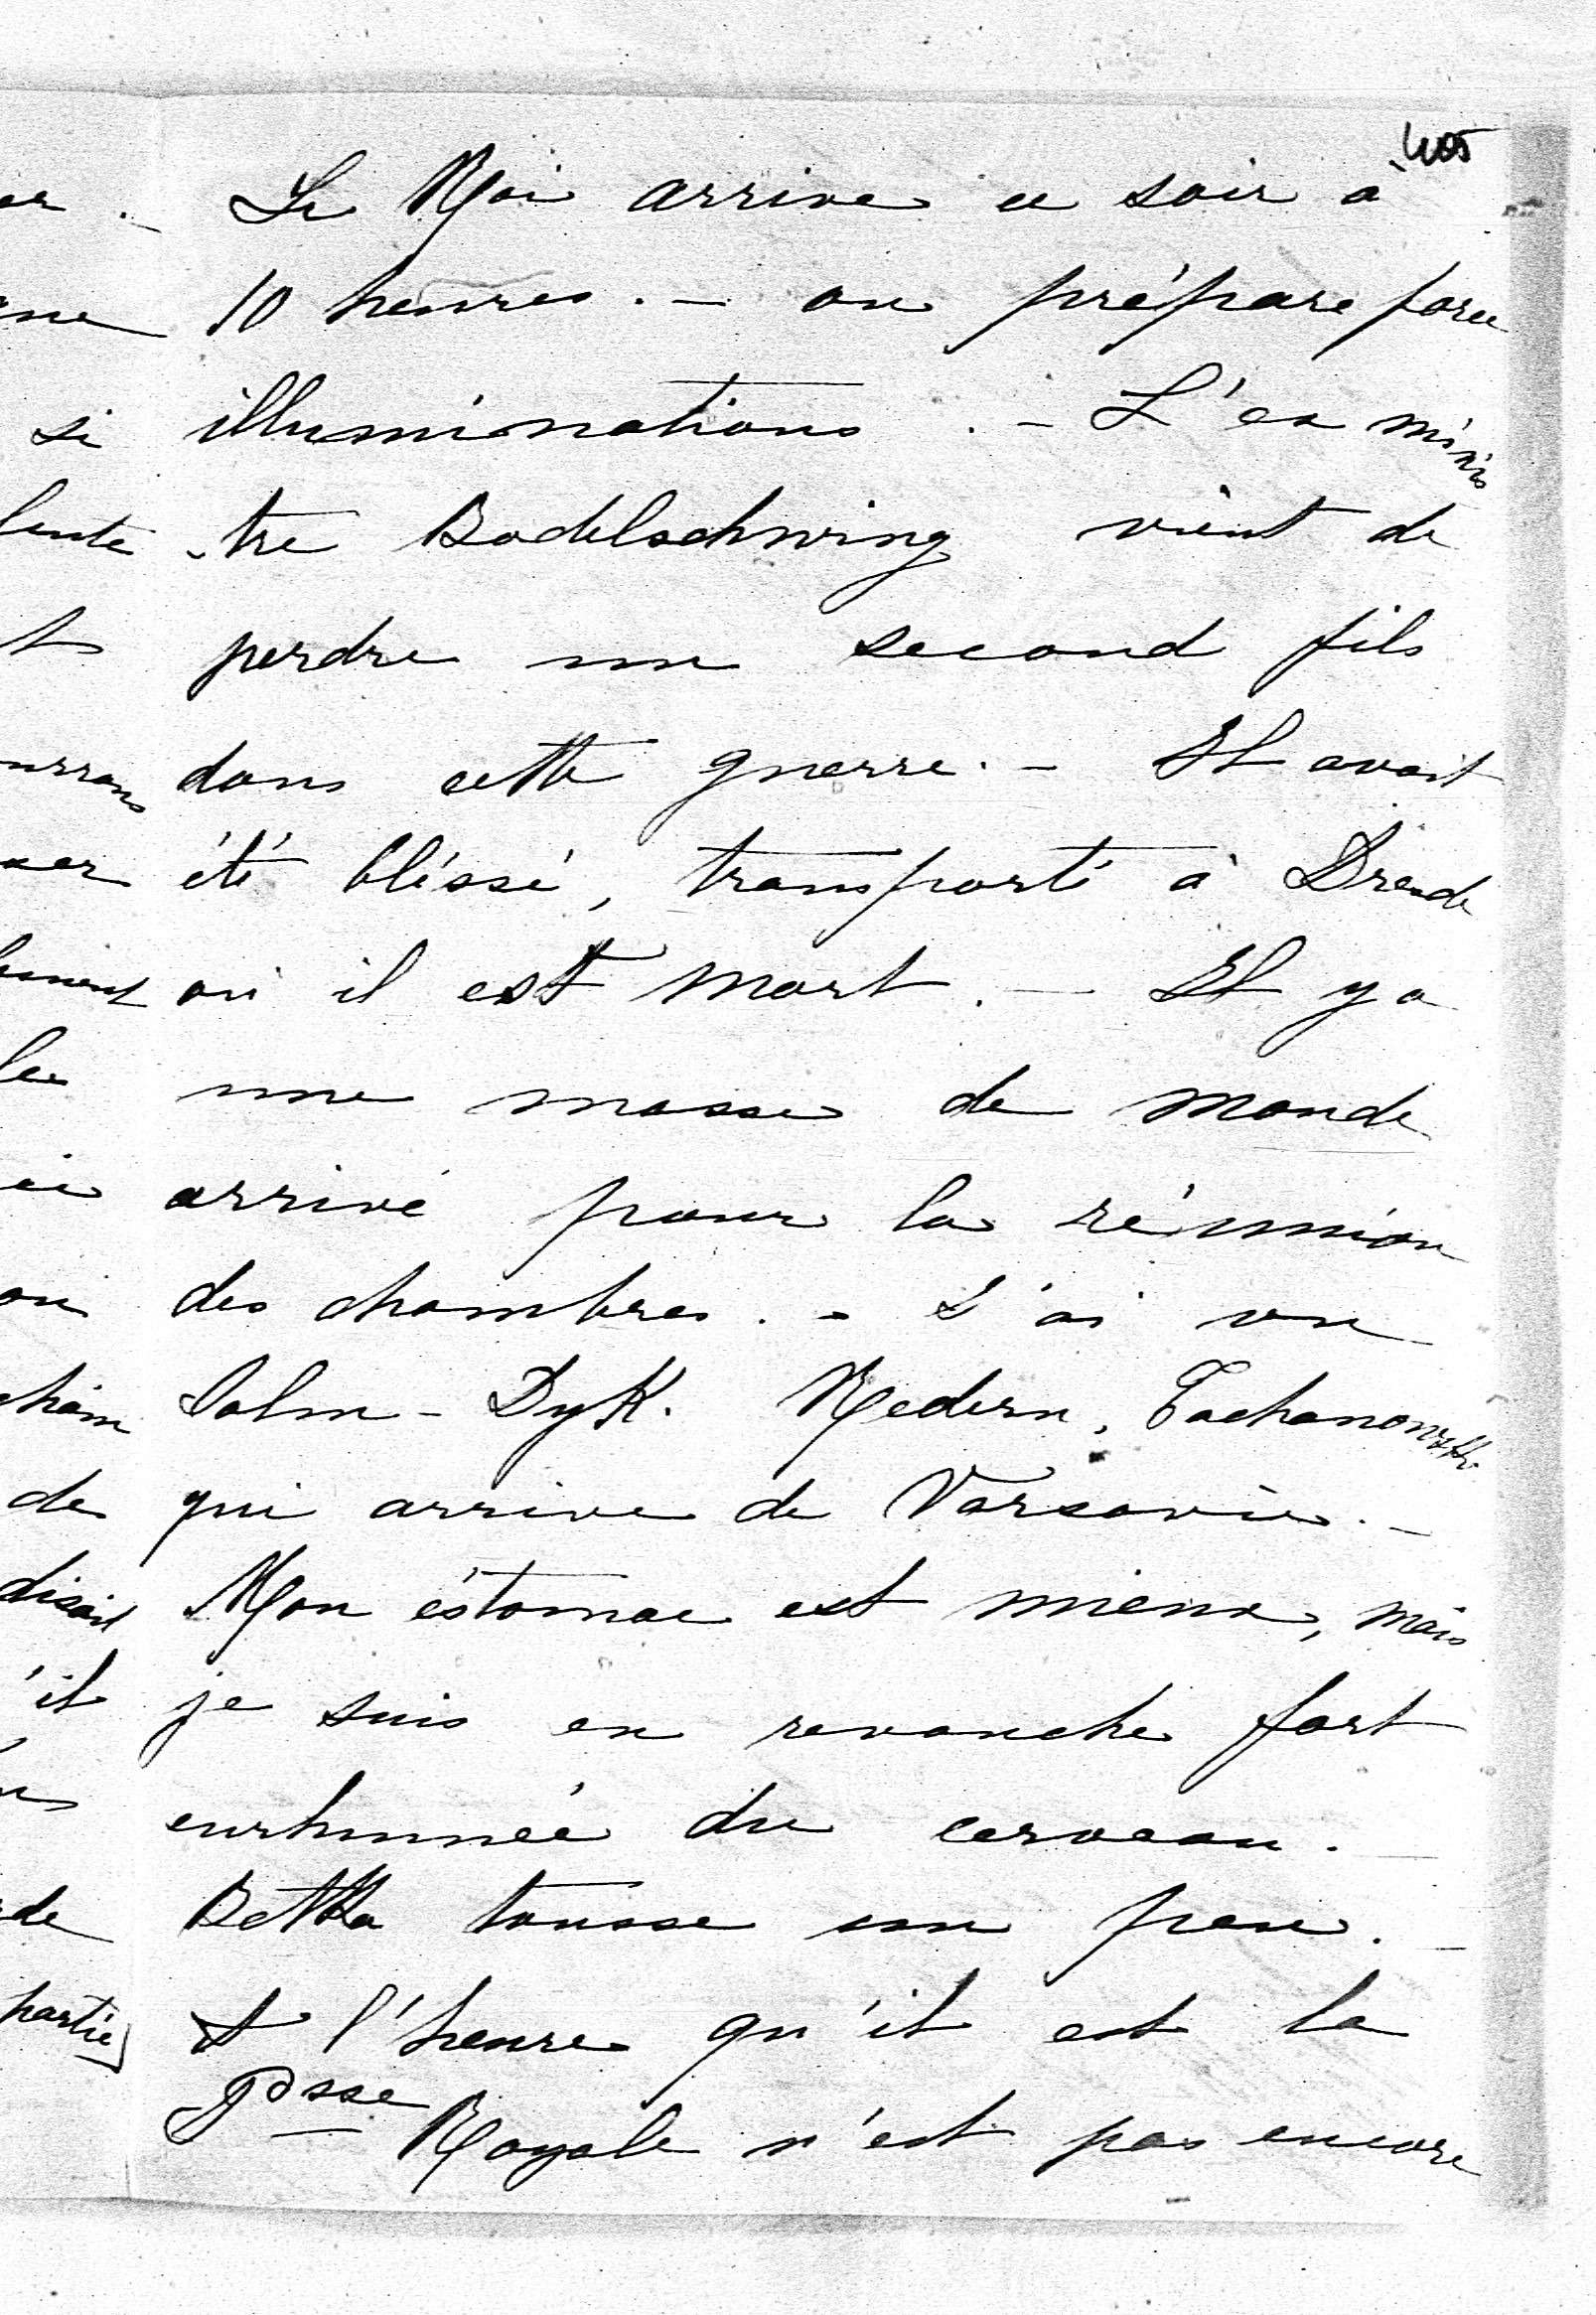 405
Le Roi arrive ce soir à
10 heures. - on prépare force
illuminations. - L'ex minis
-tre Bodelschwing vient de
perdre un second fils
dans cette guerre. - Il avait
été bléssé, transporté à Dresde
où il est mort. - Il y a
une masse de monde
arrivé pour la réunion
des chambres. - J'ai vu
Salm-Dyk. Redern,
qui arrive de Varsovie. -
Mon éstomac est mieux, mais
je suis en revanche fort
enrhumée du cerveau.
Betka tousse un peu. -
A l'heure qu'il est la
Pcsse Royale n'est pas encore
si
de
disait
'il
partie